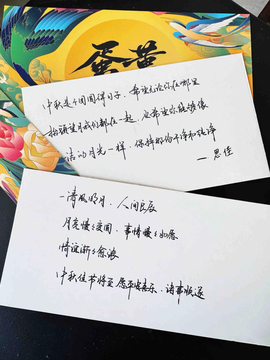 蛋黄
中秋是个团圆得日子，希望无论你在哪里
抬头望月我们都在一起，应希望你能够像
洁的月光一样，保持那份干净和纯净
— 思佳
清风明月，人间良辰
月亮慢慢变圆，事情慢慢如愿
情谊渐渐愈浓
中秋佳节将至 愿平安喜乐，诸事顺遂